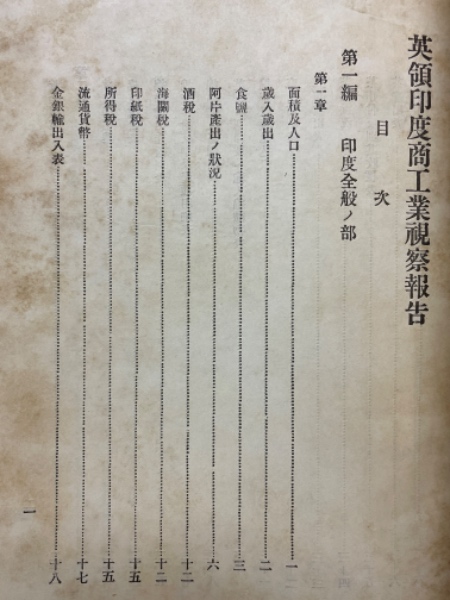 英領印度商工業視察報告
目次
第一編 印度全般ノ部
第一章
面積及人口……一
歳入歳出……二
食鹽……三
阿片產出ノ狀況……六
酒稅……十二
海關稅……十二
印紙稅……十五
所得稅……十五
流通貨幣……十七
金銀輸出入表……十八
一